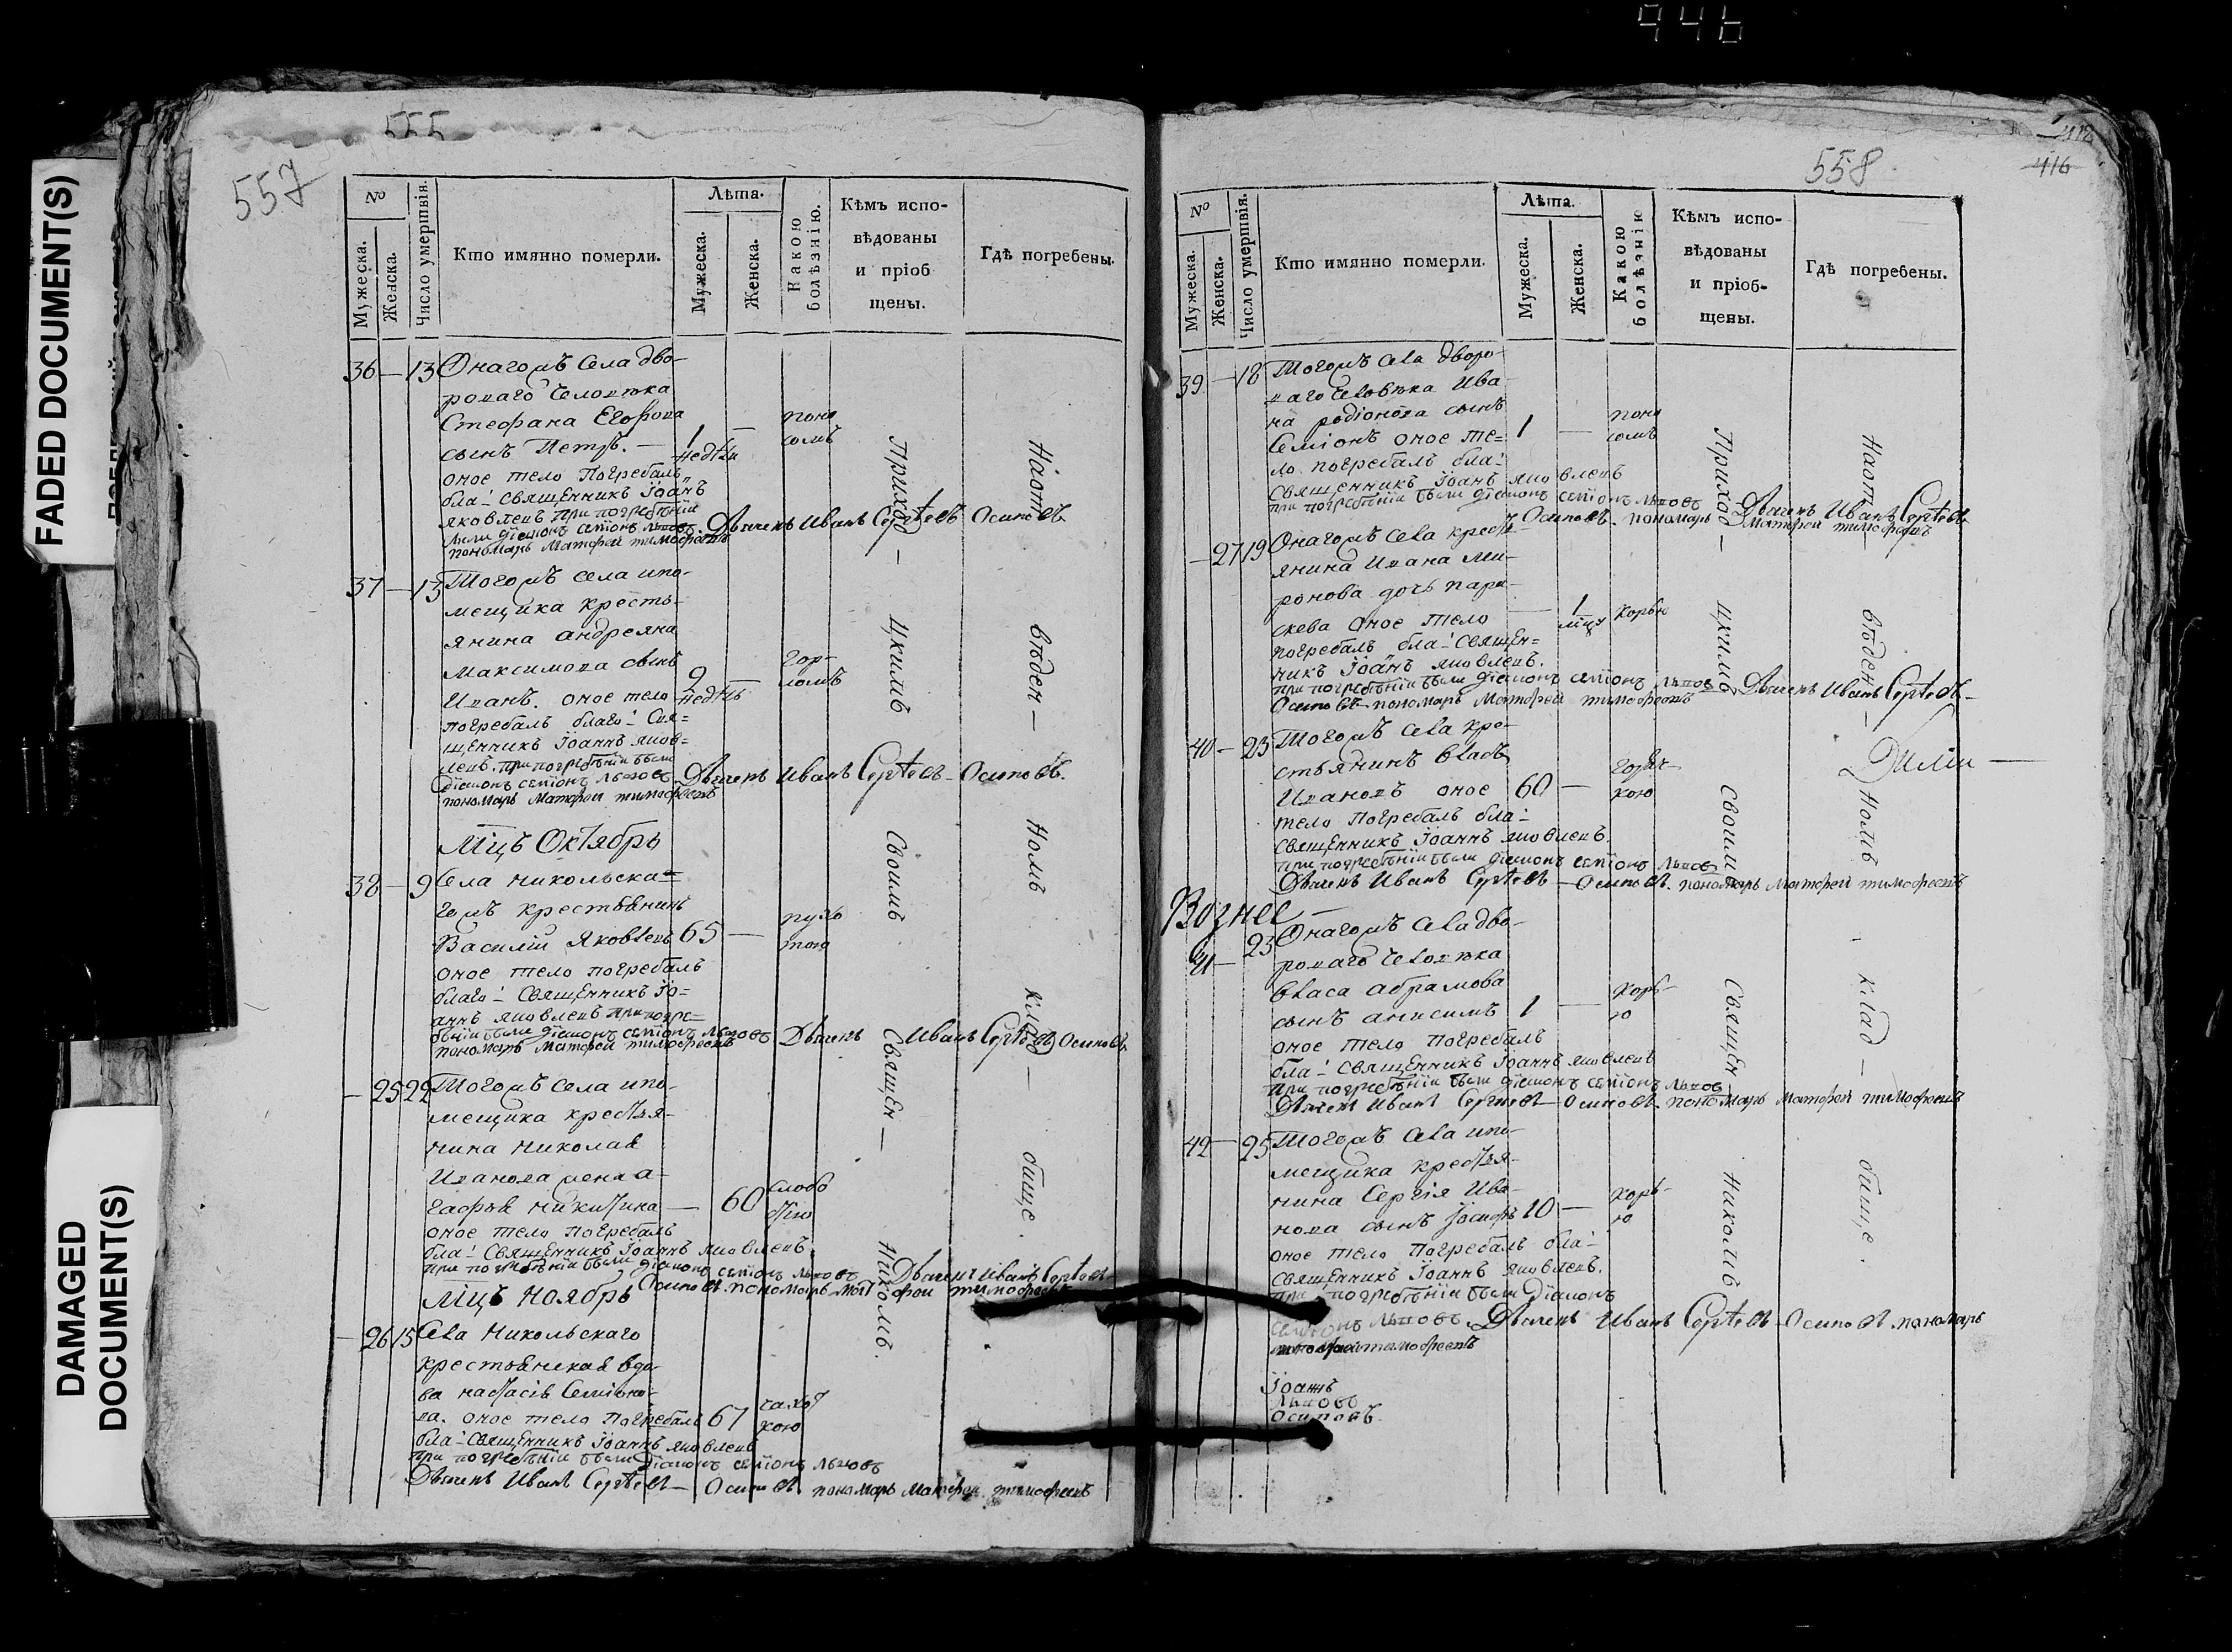 946
FADED DOCUMENT(S)
DAMAGED
DOCUMENT(S)
555
557
№
Мужеска.
Женска.
Число умертвія.
Кто имянно померли.
Лѣта.
Мужеска.
Женска.
Какою болѣзнію.
Кѣмъ испо-
вѣдованы
и пріоб
щены.
Гдѣ погребены.
36 — 13 Онагожъ Села дво-
роваго человѣка
Стефана Егорова
сынъ Петръ. — 1 недѣли — поно
сомъ
оное тело Погребалъ
бла: Священникъ Іоаннъ
яковлевъ при погребѣніи
были діаконъ семіонъ львовъ Дьячекъ Иванъ Сергѣевъ Осиповъ
пономарь Матфей тимофеевъ
37 — 13 Тогожъ села и по-
мещика кресть-
янина андреяна
Максимова сынъ
Иванъ. оное тело 9 недѣль — гор-
ломъ
погребалъ благо: Свя=
щенникъ Іоаннъ яков=
левъ. при погребѣніи были
діаконъ семіонъ львовъ Дьячекъ Иванъ Сергѣевъ — Осиповъ.
пономарь Матфей тимофеевъ
Мцъ Октябрь
38 — 9 Села никольска=
гожъ крестьянинъ
Василій Яковлевъ 65 — пухо
тою
оное тело погребалъ
благо: Священникъ Іо=
аннъ яковлевъ при погре=
бѣніи были діаконъ семіонъ львовъ Дьячекъ Иванъ Сергѣевъ Осиповъ
пономарь Матфей тимофеевъ
— 25 22 Тогожъ села и по-
мещика крестья-
нина николая
Иванова жена а-
гафья никитина — 60
оное тело погребалъ
бла: Священникъ Іоаннъ яковлевъ.
при погребѣніи были діаконъ семіонъ львовъ Дьячекъ Иванъ Сергѣевъ
Осиповъ. пономарь Матфей тимофеевъ
Мцъ Ноябрь
— 26 15 Села Никольскаго
крестьянская вдо-
ва настасія Семіоно-
ва. оное тело погребалъ 67 чахот
кою
бла: Священникъ Іоаннъ яковлевъ
при погребѣніи были Діаконъ семіонъ львовъ
Дьячекъ Иванъ Сергѣевъ — Осиповъ. пономарь Матфей тимофеевъ
Приход — цкимъ Своимъ Священ — никомъ.
На отъ — вѣден — номъ клад — бище.
558
418
416
№
Мужеска.
Женска.
Число умертвія.
Кто имянно померли.
Лѣта.
Мужеска.
Женска.
Какою болѣзнію
Кѣмъ испо-
вѣдованы
и пріоб-
щены.
Гдѣ погребены.
39 — 18 Тогожъ села дворо-
ваго человѣка Ива
на родіонова сынъ
Семіонъ оное те= 1 — поно
сомъ
ло погребалъ бла:
священникъ Іоанъ яковлевъ
при погребѣніи были діаконъ семіонъ львовъ Дьячекъ Иванъ Сергѣевъ
Осиповъ. пономарь Матфей тимофеевъ
— 27 19 Онагожъ села кресть
янина Ивана Ми-
ронова дочь пара-
скева оное тело — 1 мцъ корью
погребалъ бла: Священ=
никъ Іоанъ яковлевъ.
при погребѣніи были діаконъ семіонъ львовъ Дьячекъ Иванъ Сергѣевъ —
Осиповъ — пономарь Матфей тимофеевъ
40 — 23 Тогожъ села кре-
стьянинъ власъ
Ивановъ оное 60 — горяч-
кою
тело Погребалъ бла:
священникъ Іоаннъ яковлевъ.
при погребѣніи были діаконъ семіонъ львовъ
Дьячекъ Иванъ Сергѣевъ — Осиповъ. пономарь Матфей тимофеевъ
Вознес —
41 — 23 Онагожъ села дво-
роваго человѣка
власа абрамова
сынъ анисимъ 1 — корь-
ю
оное тело погребалъ
бла: Священникъ Іоаннъ яковлевъ
При погребѣніи были діаконъ семіонъ львовъ
Дьячекъ Иванъ Сергѣевъ — Осиповъ. пономарь Матфей тимофеевъ
42 — 25 Тогожъ села и по-
мещика крестья-
нина Сергія Ива-
нова сынъ Іосифъ 10 — корь-
ю
оное тело погребалъ бла:
священникъ Іоаннъ яковлевъ.
при погребѣніи были Діаконъ
семіонъ львовъ. Дьячекъ Иванъ Сергѣевъ — Осиповъ пономарь
матфей тимофеевъ
Іоаннъ
Львовъ
Осиповъ.
Приход — цкимъ своимъ Священ — никомъ
На отъ — вѣден — номъ клад — бище.